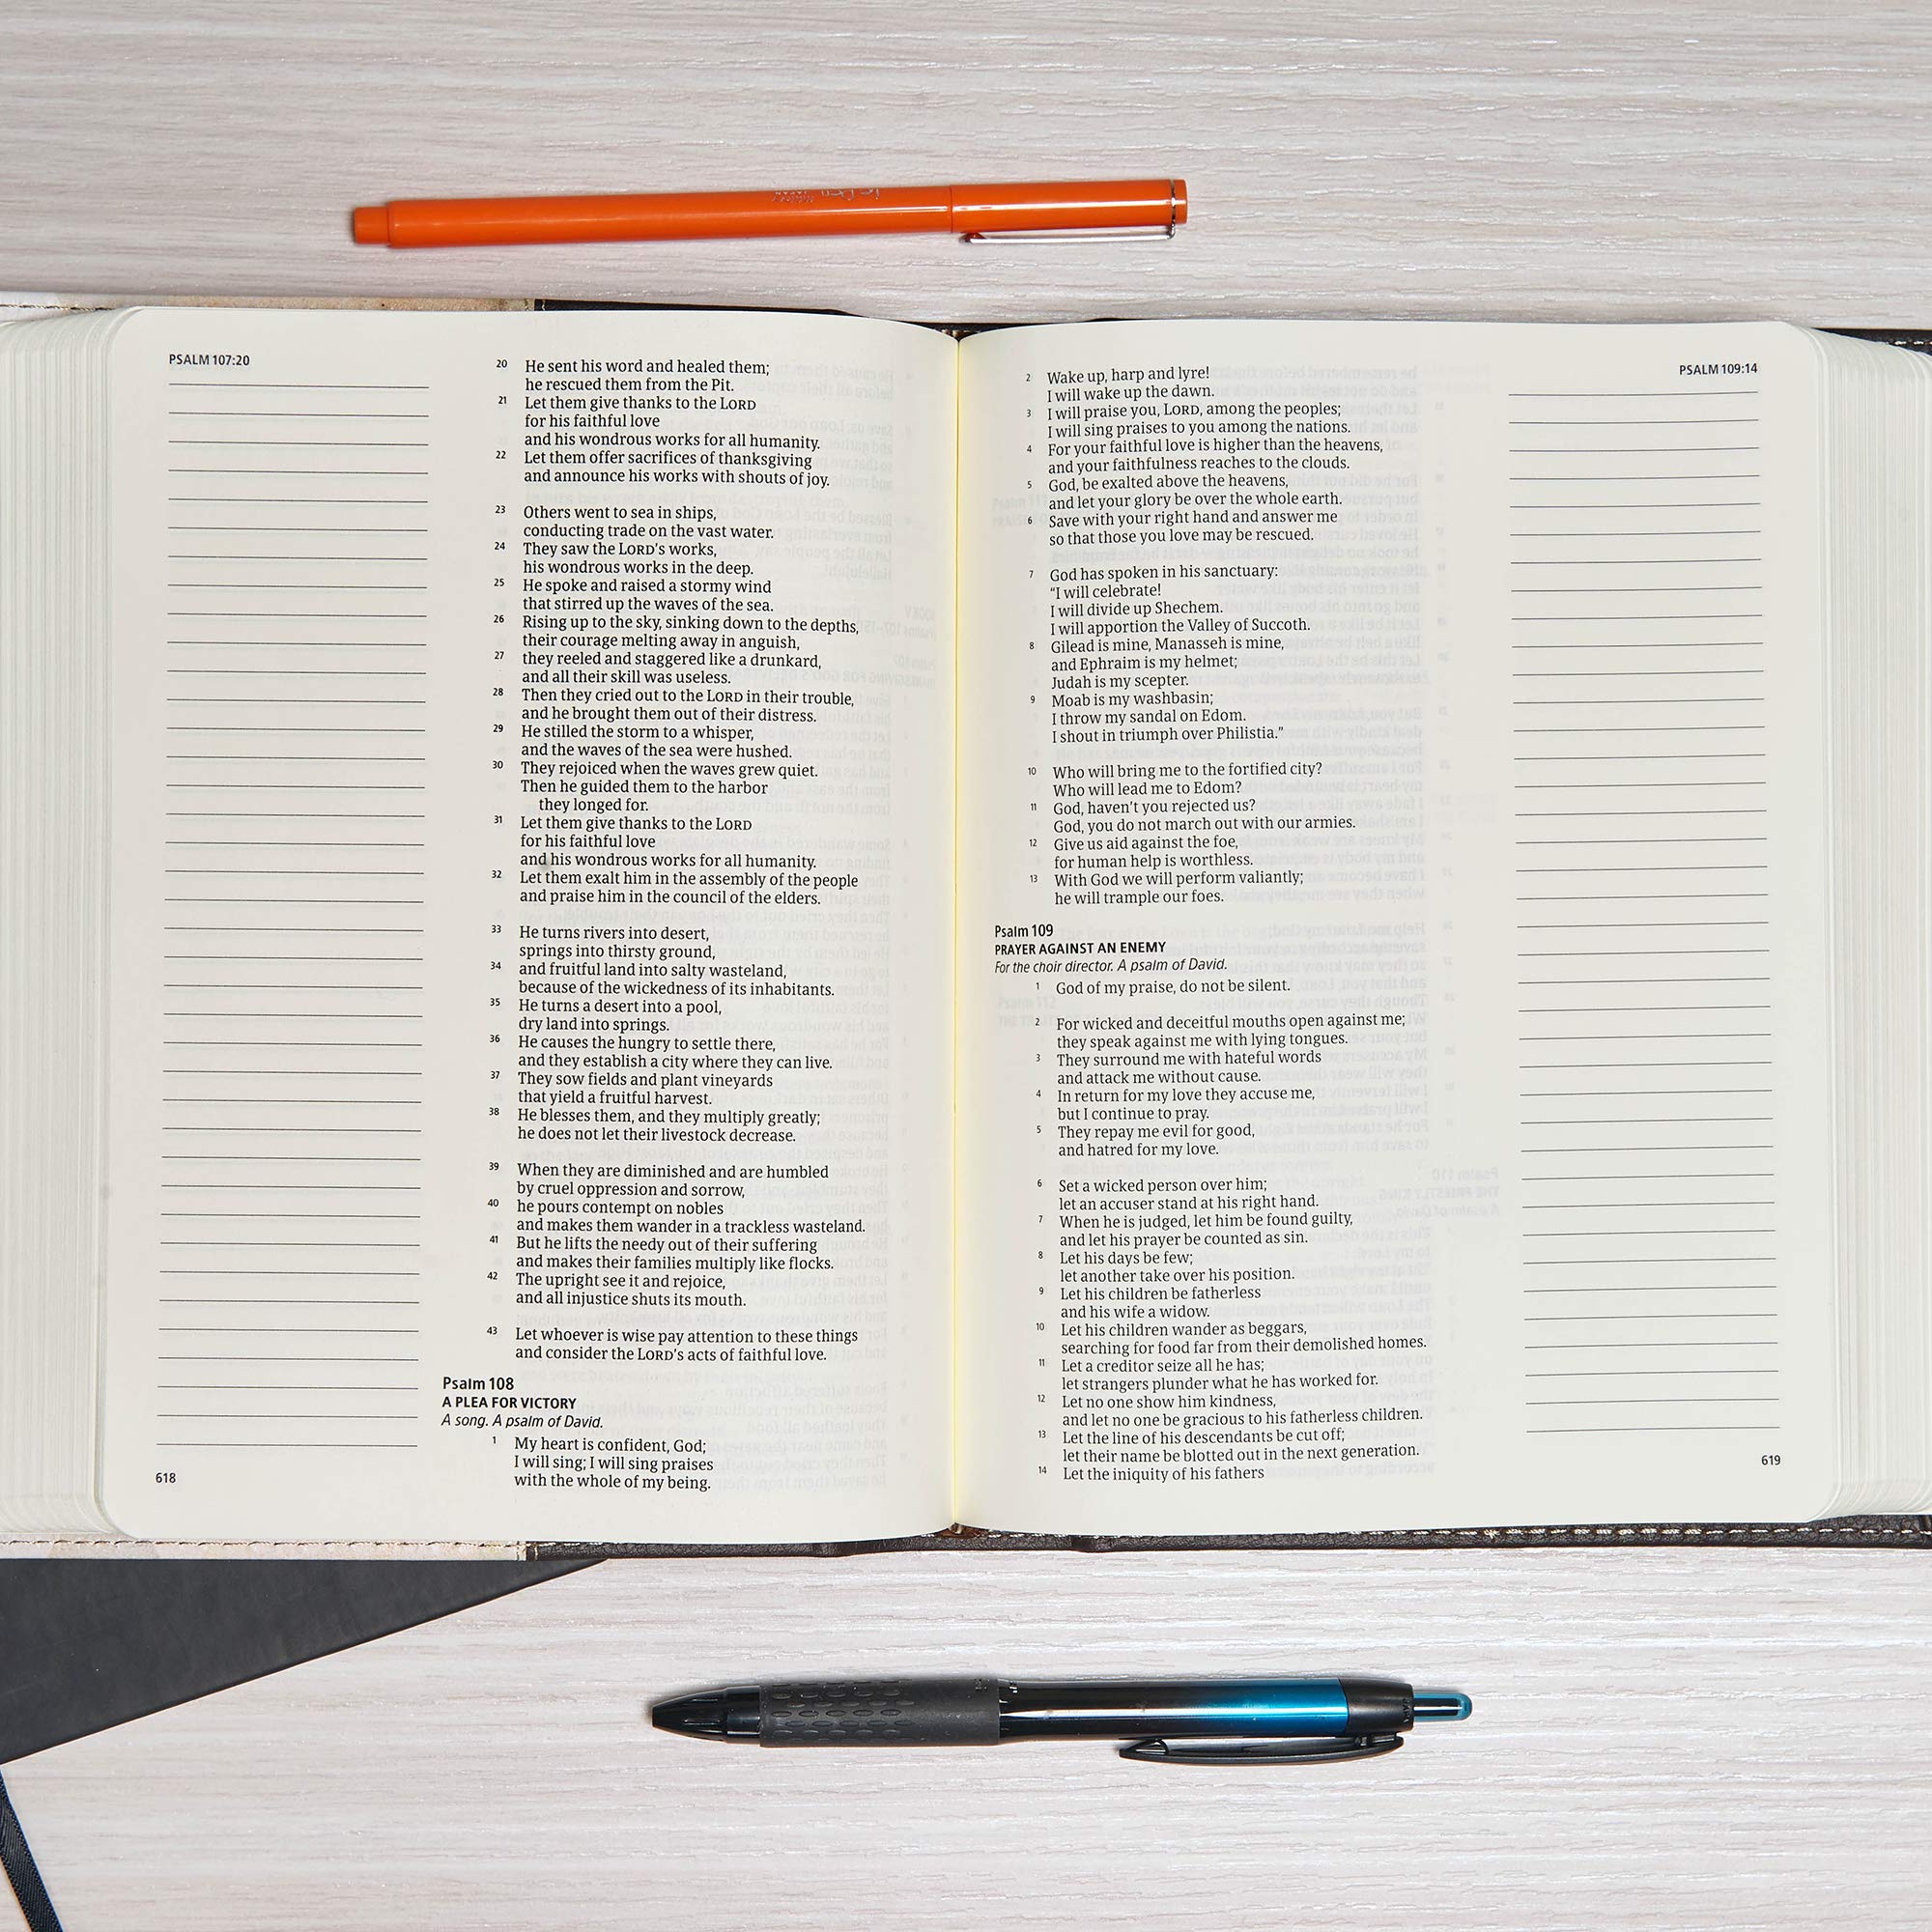 PSALM 107:20
20 He sent his word and healed them;
he rescued them from the Pit.
21 Let them give thanks to the LORD
for his faithful love
and his wondrous works for all humanity.
22 Let them offer sacrifices of thanksgiving
and announce his works with shouts of joy.
23 Others went to sea in ships,
conducting trade on the vast water.
24 They saw the LORD's works,
his wondrous works in the deep.
25 He spoke and raised a stormy wind
that stirred up the waves of the sea.
26 Rising up to the sky, sinking down to the depths,
their courage melting away in anguish,
27 they reeled and staggered like a drunkard,
and all their skill was useless.
28 Then they cried out to the LORD in their trouble,
and he brought them out of their distress.
29 He stilled the storm to a whisper,
and the waves of the sea were hushed.
30 They rejoiced when the waves grew quiet.
Then he guided them to the harbor
they longed for.
31 Let them give thanks to the LORD
for his faithful love
and his wondrous works for all humanity.
32 Let them exalt him in the assembly of the people
and praise him in the council of the elders.
33 He turns rivers into desert,
springs into thirsty ground,
34 and fruitful land into salty wasteland,
because of the wickedness of its inhabitants.
35 He turns a desert into a pool,
dry land into springs.
36 He causes the hungry to settle there,
and they establish a city where they can live.
37 They sow fields and plant vineyards
that yield a fruitful harvest.
38 He blesses them, and they multiply greatly;
he does not let their livestock decrease.
39 When they are diminished and are humbled
by cruel oppression and sorrow,
40 he pours contempt on nobles
and makes them wander in a trackless wasteland.
41 But he lifts the needy out of their suffering
and makes their families multiply like flocks.
42 The upright see it and rejoice,
and all injustice shuts its mouth.
43 Let whoever is wise pay attention to these things
and consider the LORD's acts of faithful love.
Psalm 108
A PLEA FOR VICTORY
A song. A psalm of David.
1 My heart is confident, God;
I will sing; I will sing praises
with the whole of my being.
618
PSALM 109:14
2 Wake up, harp and lyre!
I will wake up the dawn.
3 I will praise you, LORD, among the peoples;
I will sing praises to you among the nations.
4 For your faithful love is higher than the heavens,
and your faithfulness reaches to the clouds.
5 God, be exalted above the heavens,
and let your glory be over the whole earth.
6 Save with your right hand and answer me
so that those you love may be rescued.
7 God has spoken in his sanctuary:
“I will celebrate!
I will divide up Shechem.
I will apportion the Valley of Succoth.
8 Gilead is mine, Manasseh is mine,
and Ephraim is my helmet;
Judah is my scepter.
9 Moab is my washbasin;
I throw my sandal on Edom.
I shout in triumph over Philistia.”
10 Who will bring me to the fortified city?
Who will lead me to Edom?
11 God, haven't you rejected us?
God, you do not march out with our armies.
12 Give us aid against the foe,
for human help is worthless.
13 With God we will perform valiantly;
he will trample our foes.
Psalm 109
PRAYER AGAINST AN ENEMY
For the choir director. A psalm of David.
1 God of my praise, do not be silent.
2 For wicked and deceitful mouths open against me;
they speak against me with lying tongues.
3 They surround me with hateful words
and attack me without cause.
4 In return for my love they accuse me,
but I continue to pray.
5 They repay me evil for good,
and hatred for my love.
6 Set a wicked person over him;
let an accuser stand at his right hand.
7 When he is judged, let him be found guilty,
and let his prayer be counted as sin.
8 Let his days be few;
let another take over his position.
9 Let his children be fatherless
and his wife a widow.
10 Let his children wander as beggars,
searching for food far from their demolished homes.
11 Let a creditor seize all he has;
let strangers plunder what he has worked for.
12 Let no one show him kindness,
and let no one be gracious to his fatherless children.
13 Let the line of his descendants be cut off;
let their name be blotted out in the next generation.
14 Let the iniquity of his fathers
619